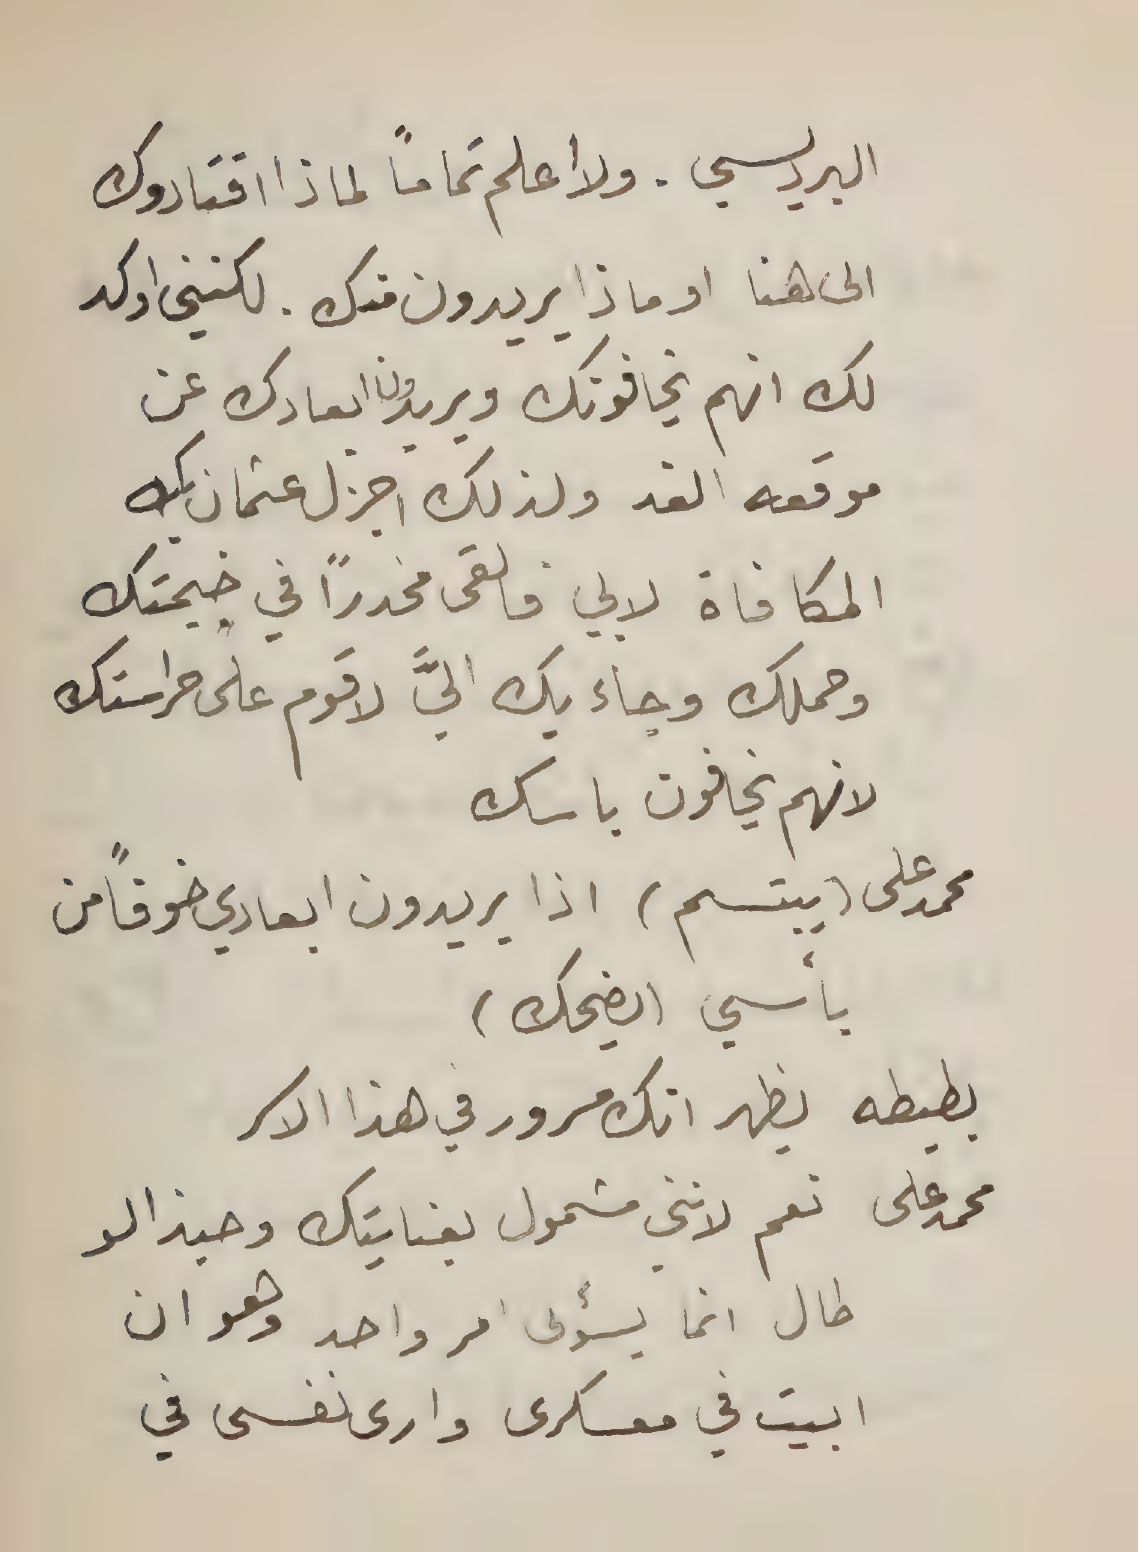 البرديسي . ولا أعلم تماماً لماذا اقتادوك
الى هنا او ماذا يريدون منك . لكننى اوكد
لك انهم يخافونك ويريدون ابعادك عن
موقعه الغد ولذلك اجزل عثمان بك
المكافاة لابي فالقى مخدراً في خيمتك
وحملك وجاء بك اليَّ لاقوم على حراستك
لانهم يخافون باسك
محمد على (يبتسم) اذا يريدون ابعادي خوفاً من
بأسي (يضحك)
بطيطه يظهر انك مسرور في هذا الاسر
محمد على نعم لانني مشمول بعنايتك وحبذا لو
طال انما يسؤنى امر واحد وهو ان
ابيت في معسكرى وارى نفسى في